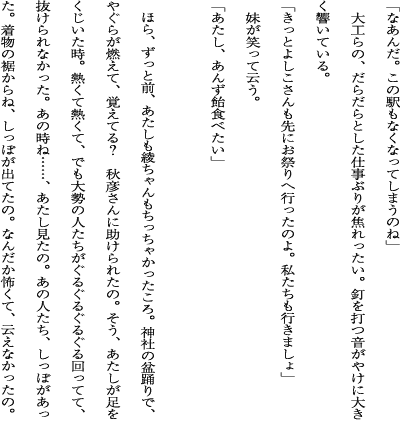 「なあんだ。この駅もなくなってしまうのね」
　大工らの、だらだらとした仕事ぶりが焦れったい。釘を打つ音がやけに大き
く響いている。
「きっとよしこさんも先にお祭りへ行ったのよ。私たちも行きましょ」
　妹が笑って云う。
「あたし、あんず飴食べたい」
　ほら、ずっと前、あたしも綾ちゃんもちっちゃかったころ。神社の盆踊りで、
やぐらが燃えて、覚えてる？　秋彦さんに助けられたの。そう、あたしが足を
くじいた時。熱くて熱くて、でも大勢の人たちがぐるぐるぐるぐる回ってて、
抜けられなかった。あの時ね……、あたし見たの。あの人たち、しっぽがあっ
た。着物の裾からね、しっぽが出てたの。なんだか怖くて、云えなかったの。